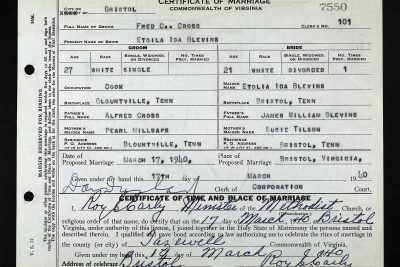 CERTIFICATE OF MARRIAGE
COMMONWEALTH OF VIRGINIA
7550
CITY OF BRISTOL
FULL NAME OF GROOM FRED C. CROSS CLERK'S NO. 101
PRESENT NAME OF BRIDE ETOILA IDA BLEVINS
GROOM BRIDE
AGE RACE SINGLE, WIDOWED, OR DIVORCED NO. TIMES PREV. MARRIED AGE RACE SINGLE, WIDOWED, OR DIVORCED NO. TIMES PREV. MARRIED
27 WHITE SINGLE 21 WHITE DIVORCED 1
OCCUPATION COOK MAIDEN NAME ETOILA IDA BLEVINS
BIRTHPLACE BLOUNTVILLE, TENN BIRTHPLACE BRISTOL, TENN
FATHER'S FULL NAME ALFRED CROSS FATHER'S FULL NAME JAMES WILLIAM BLEVINS
MOTHER'S MAIDEN NAME PEARL MILLSAPS MOTHER'S MAIDEN NAME SUSIE TILSON
RESIDENCE P. O. ADDRESS BLOUNTVILLE, TENN RESIDENCE P. O. ADDRESS BRISTOL, TENN
Date of Proposed Marriage MARCH 17, 1940 Place of Proposed Marriage BRISTOL, VIRGINIA,
Given under my hand this 17TH day of MARCH 1940
Clerk of CORPORATION Court.
CERTIFICATE OF TIME AND PLACE OF MARRIAGE
I, Roy S Early Minister of Methodist Church, or
religious order of that name, do certify that on the 17 day of March, 40 Bristol
Virginia, under authority of this license, I joined together in the Holy State of Matrimony the persons named and
described herein. I qualified and gave bond according to law authorizing me to celebrate the rites of marriage in
the county (or city) of Tazewell Commonwealth of Virginia.
Given under my hand this 17 day of March
Address of celebrant Bristol Roy S Early
MARGIN RESERVED FOR BINDING
V. S. 17